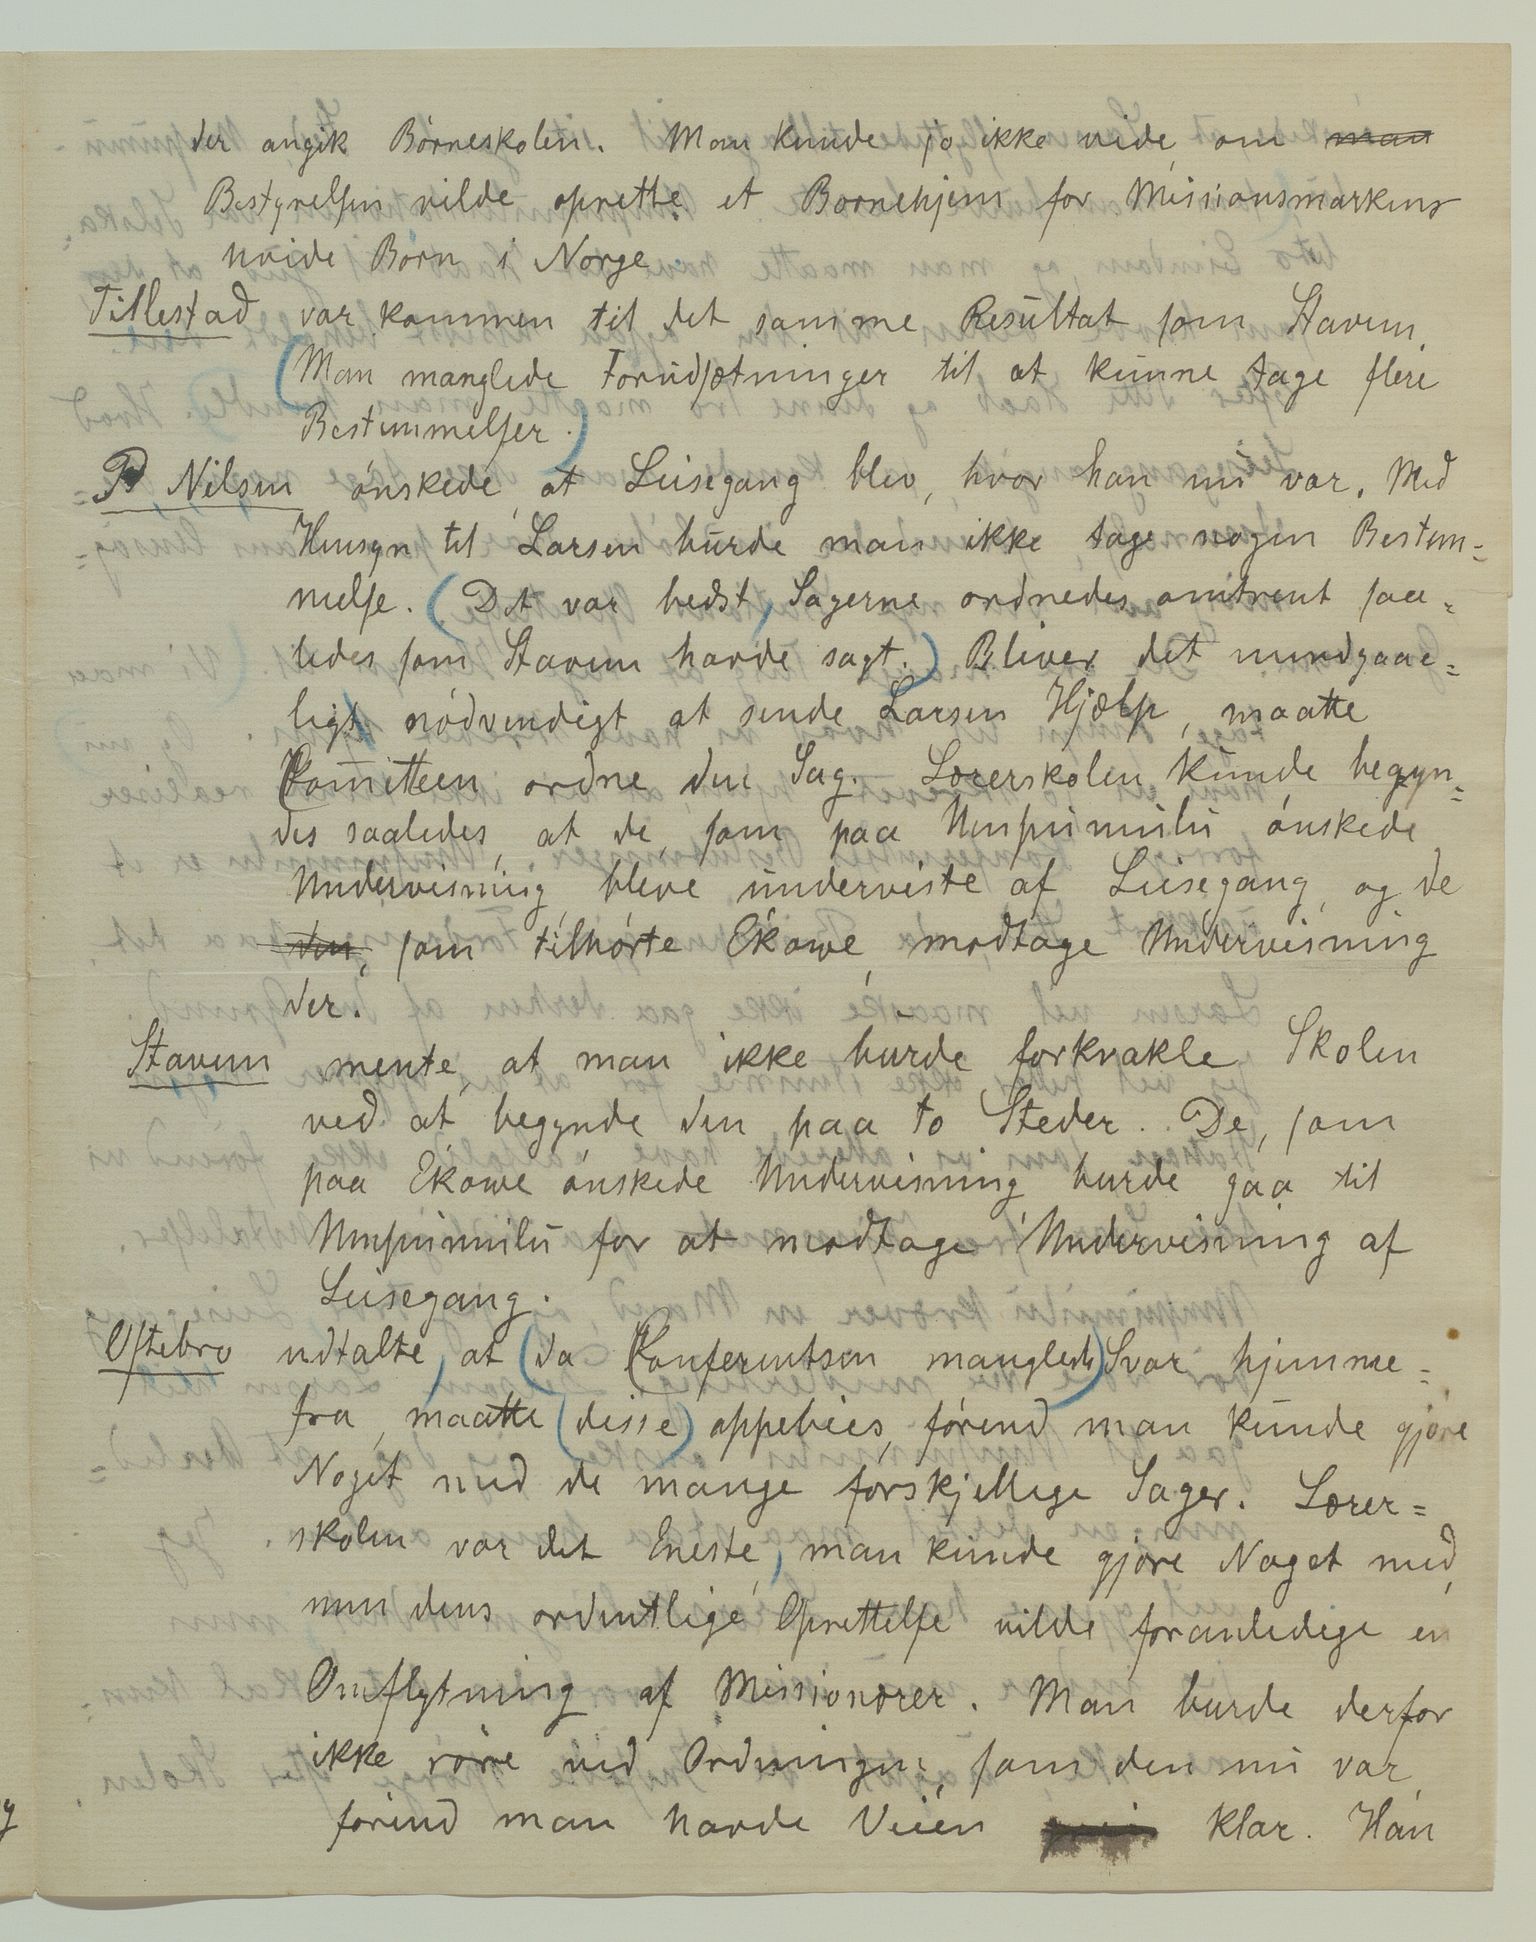 der angik Börneskolen. Man kunde jo ikke vide, om man
Bestyrelsen vilde oprette et Börnehjem for Missionsmarkens
hvide Börn i Norge
Tillestad var kommen til det samme Resultat som Stavem.
(Man manglede Forudsætninger til at kunne tage flere
Bestemmelser.)
P Nilsen önskede, at Leisegang blev, hvor han nu var. Med
Hensyn til Larsen burde man ikke tage nogen Bestem=
melse. (Det var bedst, Sagerne ordnedes omtrent saa=
ledes som Stavem havde sagt.) Bliver det uundgaae=
ligt nödvendigt at sende Larsen Hjælp, maatte
Komitteen ordne den Sag. Lærerskolen kunde begyn=
des saaledes, at de, som paa Umpumulu önskede
Undervisning bleve underviste af Leisegang, og de
den, som tilhörte Ekowe, modtage Undervisning
der.
Stavem mente, at man ikke burde forkvakle Skolen
ved at begynde den paa to Steder. De, som
paa Ekowe önskede Undervisning burde gaa til
Umpumulu for at modtage Undervisning af
Leisegang.
Oftebro udtalte, at (da Konferentsen manglede) Svar hjemme=
fra, maatte (disse) oppebies, förend man kunde gjöre
Noget med de mange forskjellige Sager. Lærer=
skolen var det Eneste, man kunde gjöre Noget med,
men dens ordentlige Oprettelse vilde foranledige en
Omflytning af Missionærer. Man burde derfor
ikke röre ved Ordningen, som den nu var,
förend man havde Veien klar. Han